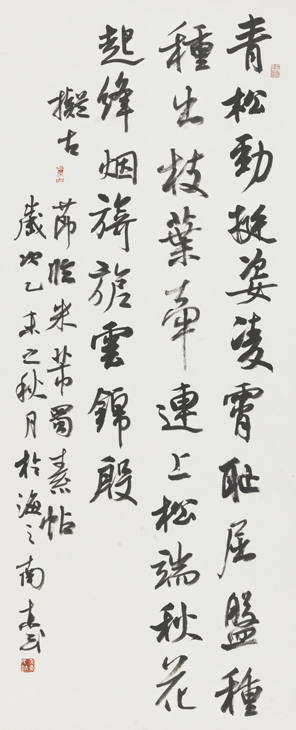 青松勁挺姿凌霄恥屈盤種
種出枝葉牽連上松端秋花
起絳烟旖旎雲錦殷
擬古
節臨米芾蜀素帖
歲次乙未之秋月於海之南